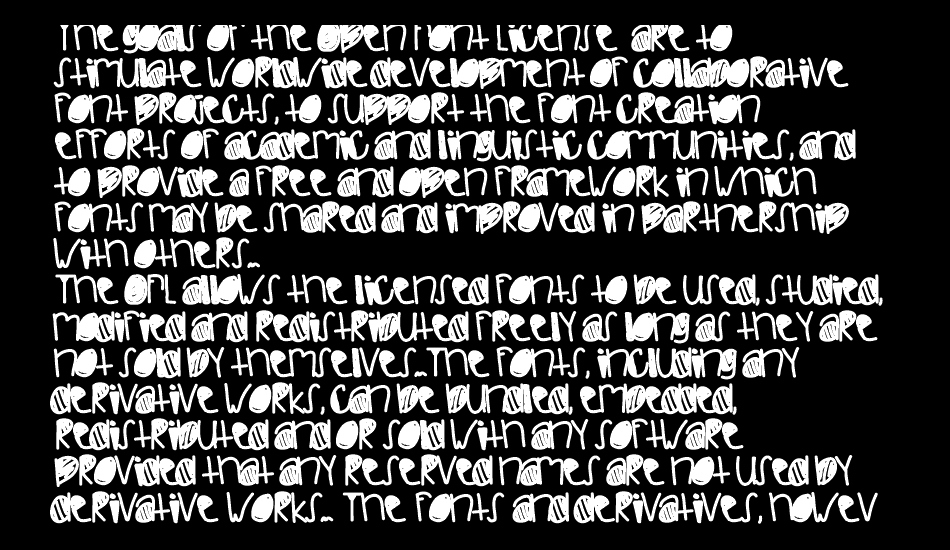 The goals of the Open Font License are to
stimulate worldwide development of collaborative
font projects, to support the font creation
efforts of academic and linguistic communities, and
to provide a free and open framework in which
fonts may be shared and improved in partnership
with others.
The OFL allows the licensed fonts to be used, studied,
modified and redistributed freely as long as they are
not sold by themselves. The fonts, including any
derivative works, can be bundled, embedded,
redistributed and or sold with any software
provided that any reserved names are not used by
derivative works. The fonts and derivatives, howev